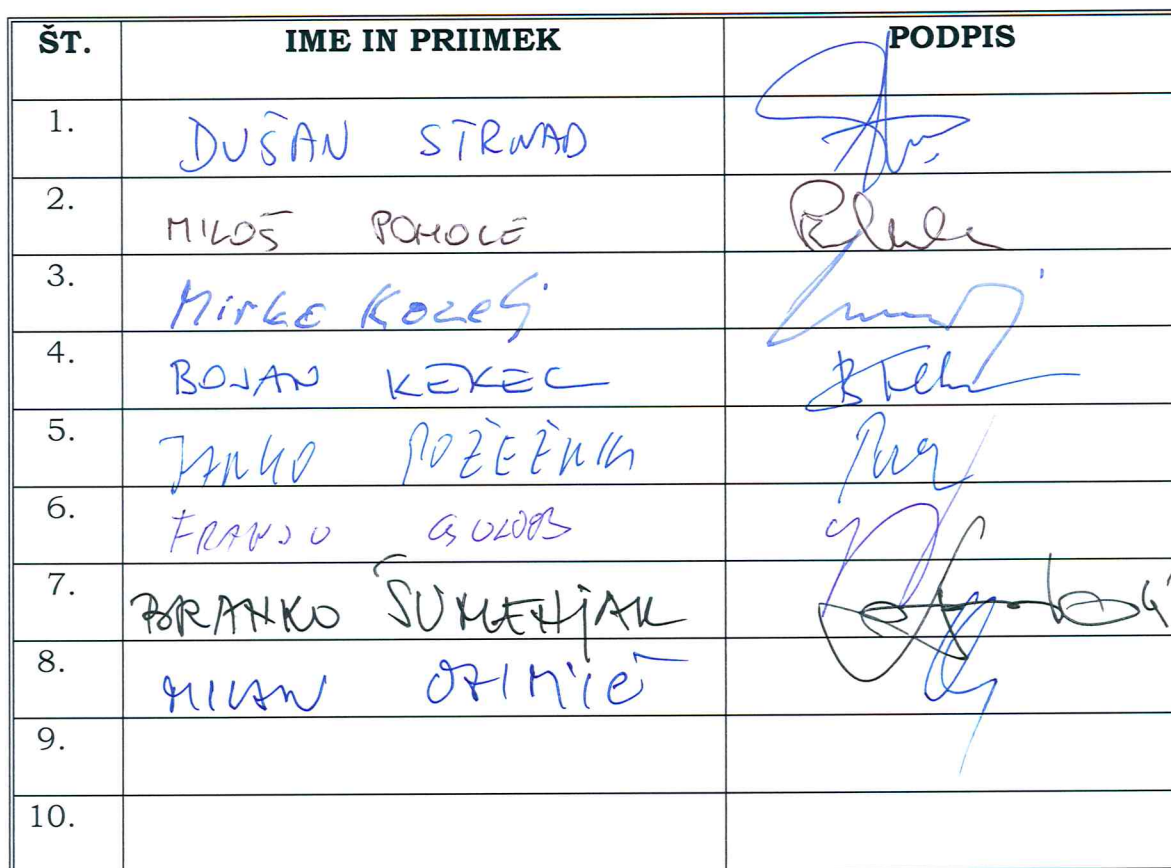 ŠT. IME IN PRIIMEK PODPIS
1. DUŠAN STRNAD
2. MILOŠ POHOLE
3. Mirko Kozelj
4. BOJAN KEKEC
5. JANKO POŽEŽNIK
6. FRANJO GOLOB
7. BRANKO ŠUMENJAK
8. MILAN OZIMIČ
9.
10.